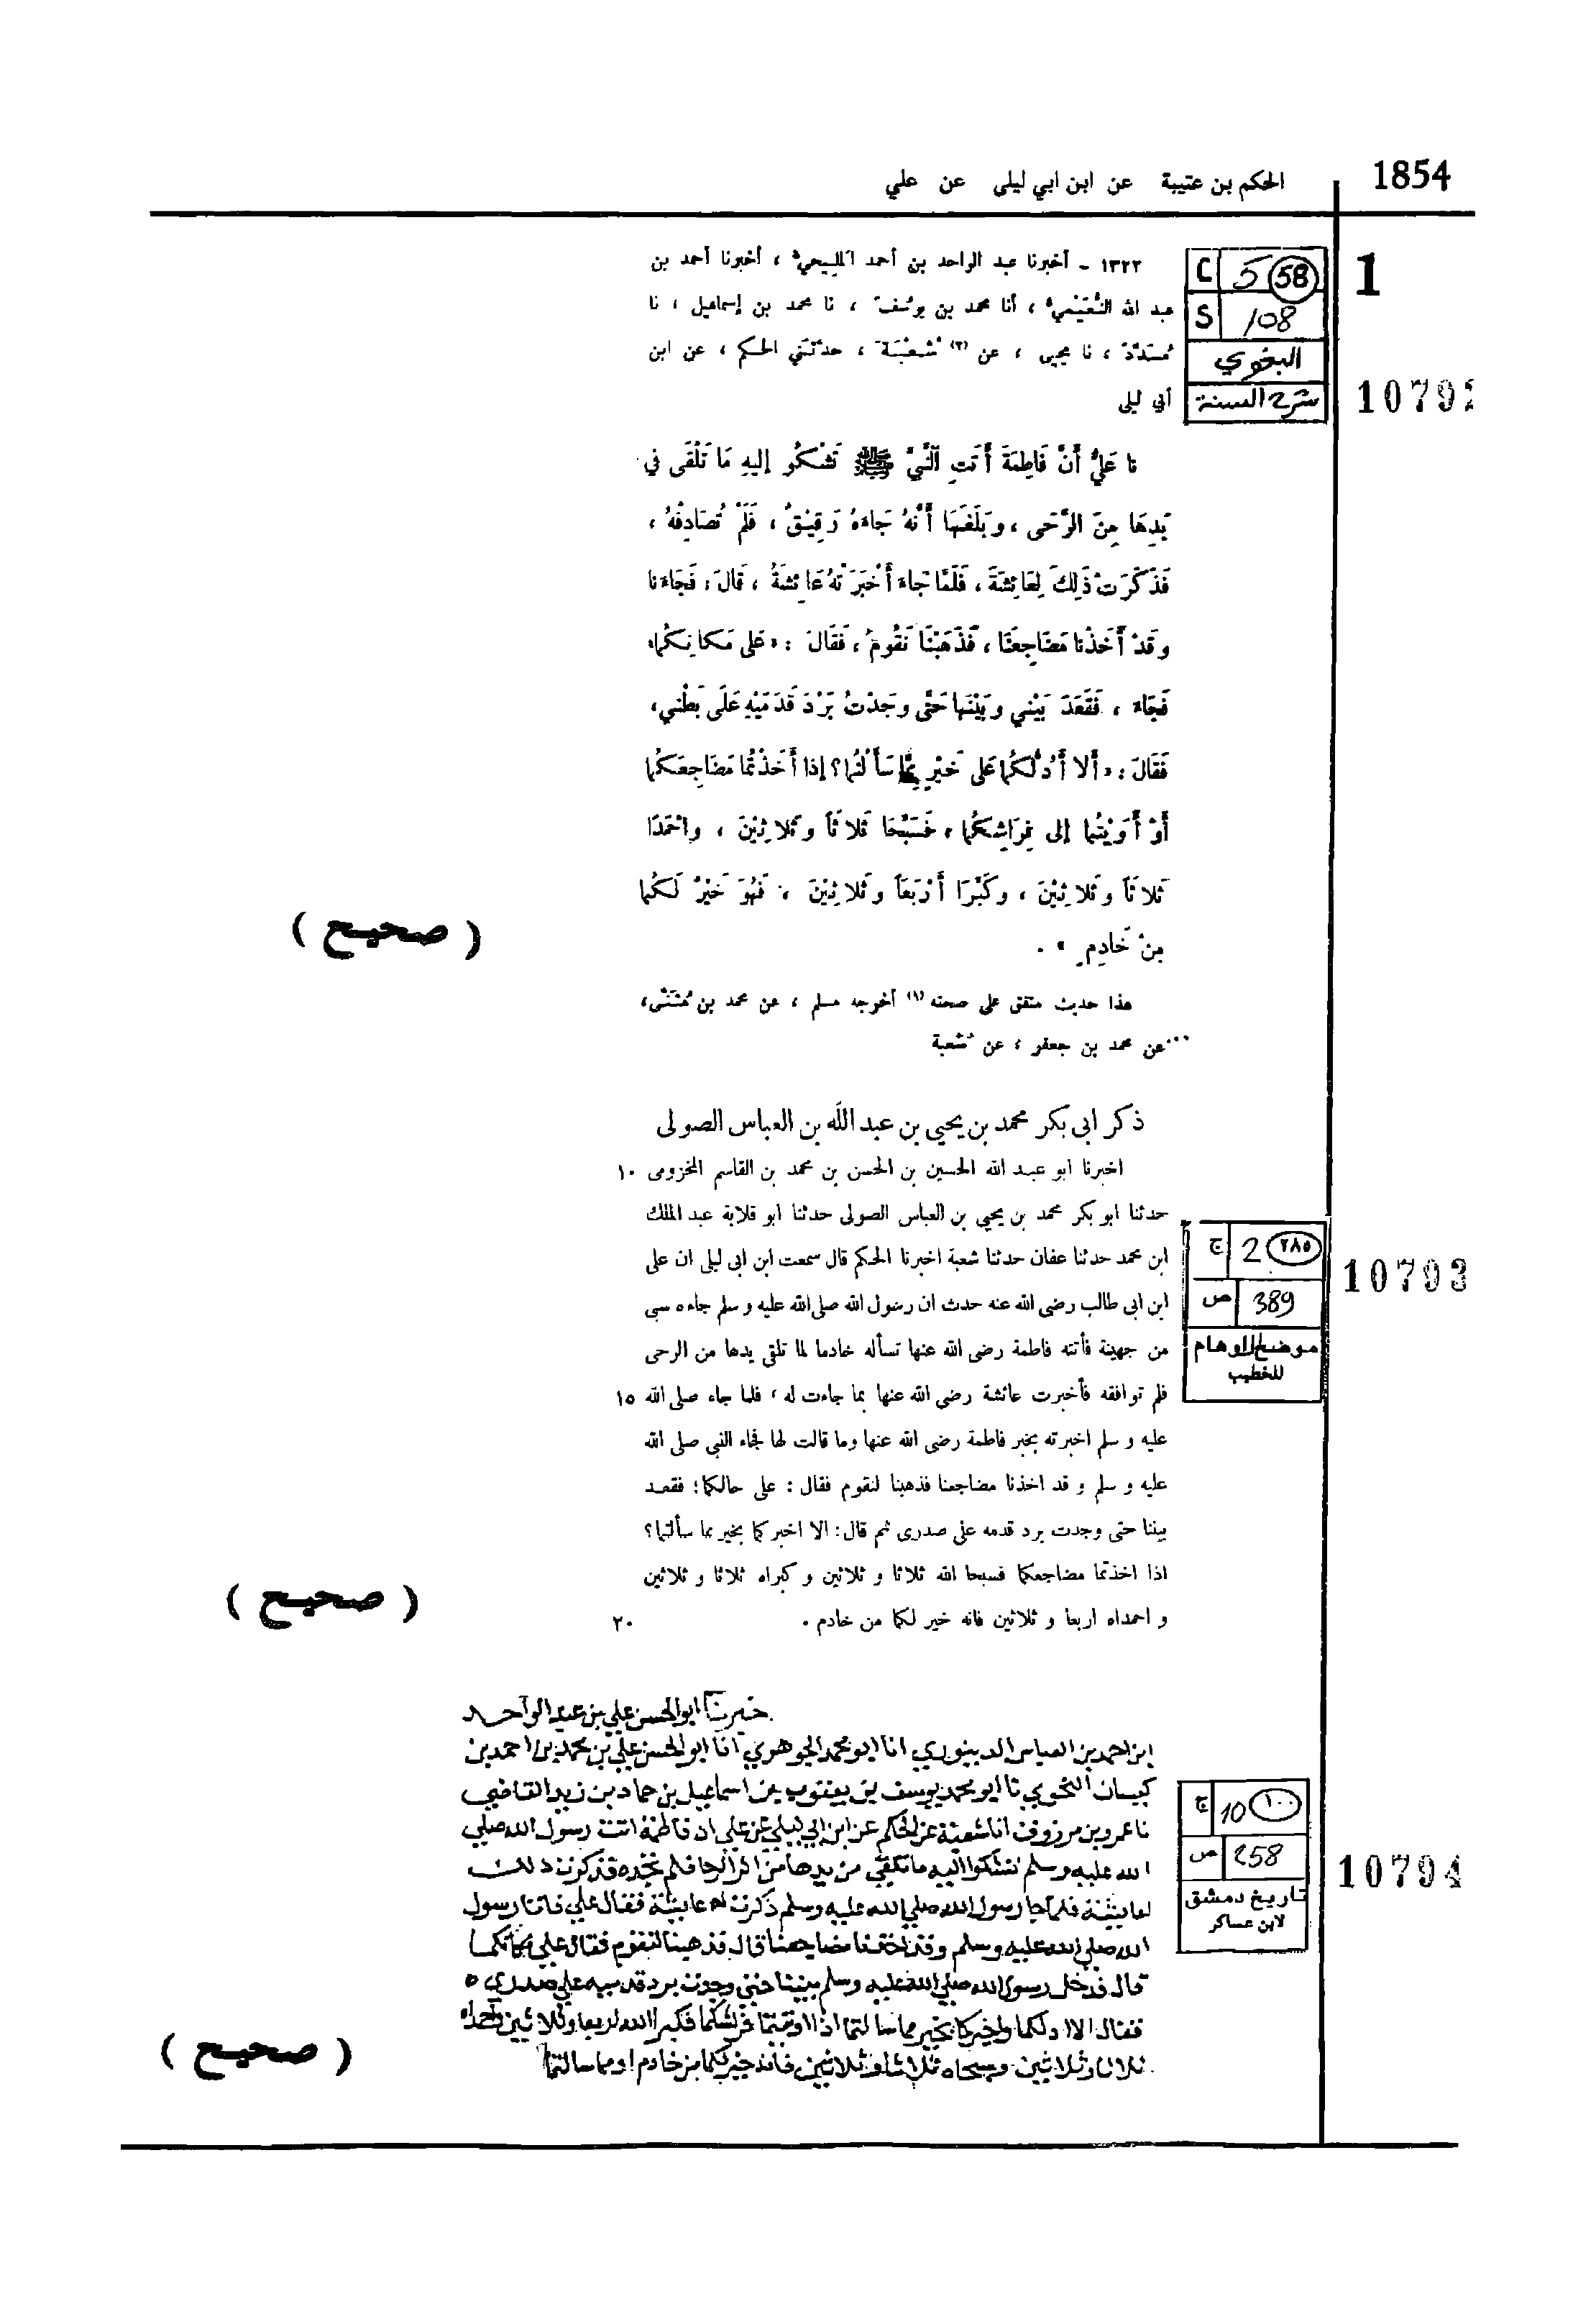 الحكم بن عتيبة عن ابن ابي ليلى عن علي
1854
١٣٢٢ ـ أخبرنا عبد الواحد بن أحمد المليحي ، أخبرنا أحمد بن
عبد الله النُّعَيْمي ، أنا محمد بن يوسف ، نا محمد بن إسماعيل ، نا
مُسَدَّد ، نا يحيى ، عن (٢) شُعْبَة ، حدثني الحكم ، عن ابن
أبي ليلى
C 5 58
S 108
البغوي
شرح السنة
1
10792
نا عَلِيٌّ أَنَّ فَاطِمَةَ أَتَتِ النَّبِيَّ ﷺ تَشْكُو إِليهِ مَا تَلْقَى في
يَدِهَا مِنَ الرَّحَى ، وَبَلَغَهَا أَنَّهُ جَاءَهُ رَقِيْقٌ ، فَلَمْ تُصَادِفْهُ ،
فَذَكَرَتْ ذَلِكَ لِعَائِشَةَ ، فَلَمَّا جَاءَ أَخْبَرَتْهُ عَائِشَةُ ، قَالَ : فَجَاءَنا
وَقَدْ أَخَذْنا مَضَاجِعَنَا ، فَذَهَبْنَا نَقُومُ ، فَقَالَ : «عَلى مَكانِكُما»
فَجَاءَ ، فَقَعَدَ بَيْني وَبَيْنَها حَتَّى وَجَدْتُ بَرْدَ قَدَمَيْهِ عَلَى بَطْني ،
فَقَالَ : «أَلا أَدُلُّكُما عَلى خَيْرٍ مِمَّا سَأَلْتُما؟ إِذا أَخَذْتُما مَضَاجِعَكُما
أَوْ أَوَيْتُما إِلى فِرَاشِكُما ، فَسَبِّحَا ثَلاثاً وَثَلاثِيْنَ ، وَاحْمَدَا
ثَلاثاً وَثَلاثِيْنَ ، وَكَبِّرَا أَرْبَعاً وَثَلاثِيْنَ ، فَهُوَ خَيْرٌ لَكُما
مِنْ خَادِمٍ » .
( صحيح )
هذا حديث متفق على صحته (١) أخرجه مسلم ، عن محمد بن مُثَنَّى ،
عن محمد بن جعفر ، عن شُعبة ...
ذكر ابى بكر محمد بن يحيى بن عبد الله بن العباس الصولى
اخبرنا ابو عبد الله الحسين بن الحسن بن محمد بن القاسم المخزومى ١٠
حدثنا ابو بكر محمد بن يحيى بن العباس الصولى حدثنا ابو قلابة عبد الملك
ابن محمد حدثنا عفان حدثنا شعبة اخبرنا الحكم قال سمعت ابن ابى ليلى ان على
ابن ابى طالب رضى الله عنه حدث ان رسول الله صلى الله عليه و سلم جاءه سبى
من جهينة فأتته فاطمة رضى الله عنها تسأله خادما لما تلقى يدها من الرحى
فلم توافقه فأخبرت عائشة رضى الله عنها بما جاءت له ، فلما جاء صلى الله ١٥
عليه و سلم اخبرته بخبر فاطمة رضى الله عنها وما قالت لها فجاء النبي صلى الله
عليه و سلم و قد اخذنا مضاجعنا فذهبنا لنقوم فقال : على حالكما ؛ فقعد
بيننا حتى وجدت برد قدمه على صدرى ثم قال : الا اخبركما بخير مما سألتما ؟
اذا اخذتما مضاجعكما فسبحا الله ثلاثا و ثلاثين و كبراه ثلاثا و ثلاثين
و احمداه اربعا و ثلاثين فانه خير لكما من خادم . ٢٠
( صحيح )
ج 2 ٢٨٥
ص 389
موضح الاوهام
للخطيب
10793
خبرنا ابو الحسن علي بن عبد الواحد
ابن احمد بن العباس الدينوري انا ابو محمد الجوهري انا ابو الحسن علي بن محمد بن احمد بن
كيسان النحوي نا ابو محمد يوسف بن يعقوب بن اسماعيل بن حماد بن زيد القاضي
نا عمرو بن مرزوق انا شعبة عن الحكم عن ابن ابي ليلى عن علي ان فاطمة اتت رسول الله صلي
الله عليه وسلم تشكوا اليه ما تلقى من يدها من اثر الرحا فلم تجده فذكرت ذلك
لعايشة فلما جا رسول الله صلي الله عليه وسلم ذكرت له عايشة فقال علي فاتانا رسول
الله صلي الله عليه وسلم وقد اخذنا مضاجعنا قال فذهبنا لنقوم فقال علي مكانكما
قال فدخل رسول الله صلي الله عليه وسلم بيننا حتى وجدت برد قدميه علي صدري ه
فقال الا ادلكما واخبركما بخير مما سالتما اذا اويتما فرشكما فكبرا الله اربعا وثلاثين واحمداه
ثلاثا وثلاثين وسبحاه ثلاثا وثلاثين فانه خير لكما من خادم او مما سالتما
( صحيح )
ج 10 ١٠٠
ص 258
تاريخ دمشق
لابن عساكر
10794